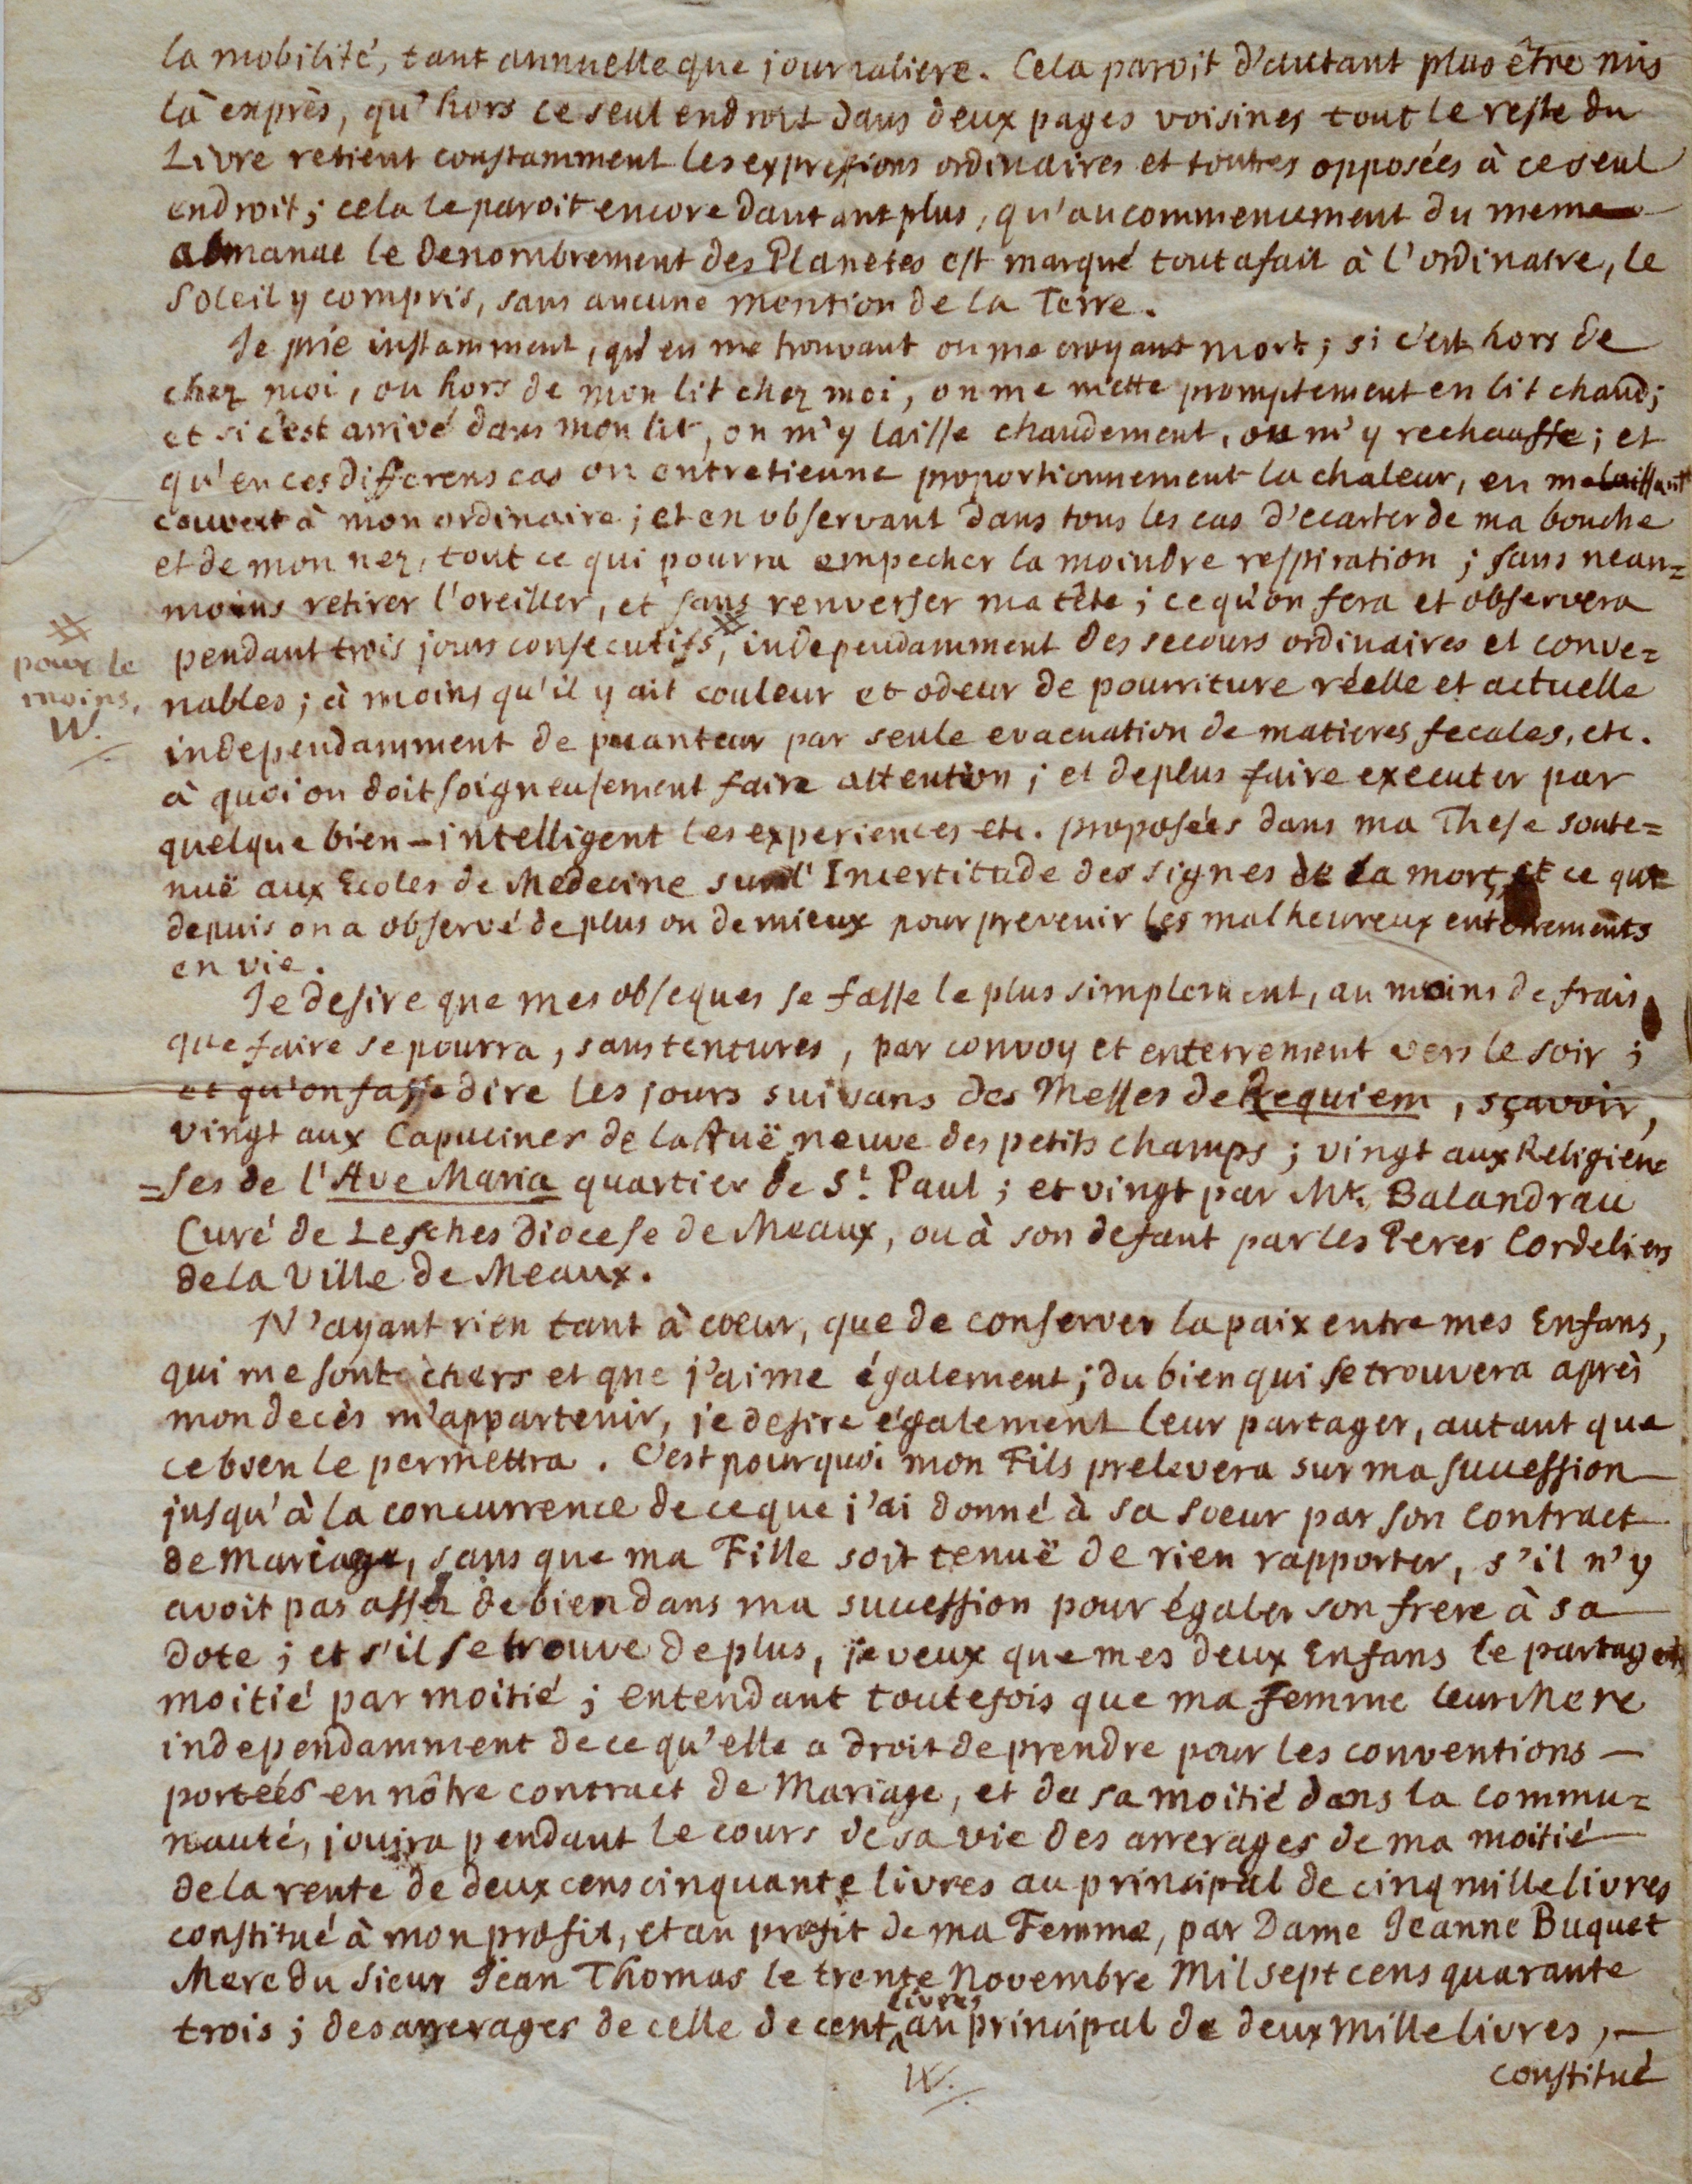 la mobilité, tant annuelle que journaliere. Cela paroit d'autant plus être mis
là exprès, qu'hors ce seul endroit dans deux pages voisines tout le reste du
Livre retient constamment les expressions ordinaires et toutes opposées à ce seul
endroit; cela le paroit encore dautant plus, qu'au commencement du meme
almanac le denombrement des Planetes est marqué toutafait à l'ordinaire, le
Soleil y compris, sans aucune mention de la Terre.
Je prie instamment, qu'en me trouvant ou me croyant mort; si c'est hors de
chez moi, ou hors de mon lit chez moi, on me mette promptement en lit chaud;
et si c'est arrivé dans mon lit, on m'y laisse chaudement, ou m'y rechauffe; et
qu'en ces differens cas on entretienne proportionnement la chaleur, en me laissant
couvert à mon ordinaire; et en observant dans tous les cas d'ecarter de ma bouche
et de mon nez, tout ce qui pourra empecher la moindre respiration; sans nean=
moins retirer l'oreiller, et sans renverser ma tête; ce qu'on fera et observera
pendant trois jours consecutifs #, independamment des secours ordinaires et conve=
# pour le
moins,
W.
nables; à moins qu'il y ait couleur et odeur de pourriture réelle et actuelle
independamment de puanteur par seule evacuation de matieres fecales, etc.
à quoi on doit soigneusement faire attention; et deplus faire executer par
quelque bien-intelligent les experiences etc. proposées dans ma These soute=
nuë aux Ecoles de Medecine sur l'Incertitude des signes de la mort, et ce que
depuis on a observé de plus ou de mieux pour prevenir les malheureux enterrements
en vie.
Je desire que mes obseques se fasse le plus simplement, au moins de frais
que faire se pourra, sans tentures, par convoy et enterrement vers le soir;
et qu'on fasse dire les jours suivans des Messes de Requiem, sçavoir,
vingt aux Capucines de la Ruë neuve des petits champs; vingt aux Religieu
=ses de l'Ave Maria quartier de St. Paul; et vingt par Mr. Balandrau
Curé de Lesches Diocese de Meaux, ou à son defaut par les Peres Cordeliers
de la Ville de Meaux.
N'ayant rien tant à coeur, que de conserver la paix entre mes Enfans,
qui me sont chers et que j'aime également; du bien qui se trouvera après
mon decès m'appartenir, je desire également leur partager, autant que
ce bien le permettra. C'est pourquoi mon Fils prelevera sur ma succession
jusqu'à la concurrence de ce que j'ai donné à sa soeur par son Contract
de Mariage, sans que ma Fille soit tenuë de rien rapporter, s'il n'y
avoit pas assez de bien dans ma succession pour égaler son frere à sa
dote; et s'il se trouve de plus, je veux que mes deux Enfans le partagent
moitié par moitié; entendant toutefois que ma femme leur Mere
independamment de ce qu'elle a droit de prendre pour les conventions
portées en nôtre contract de Mariage, et de sa moitié dans la commu=
nauté, jouira pendant le cours de sa vie des arrerages de ma moitié
de la rente de deux cens cinquante livres au principal de cinq mille livres
constitué à mon profit, et au profit de ma Femme, par Dame Jeanne Buquet
Mere du Sieur Jean Thomas le trente Novembre Mil sept cens quarante
trois; des arrerages de celle de cent livres au principal de deux mille livres,
W.
constitué